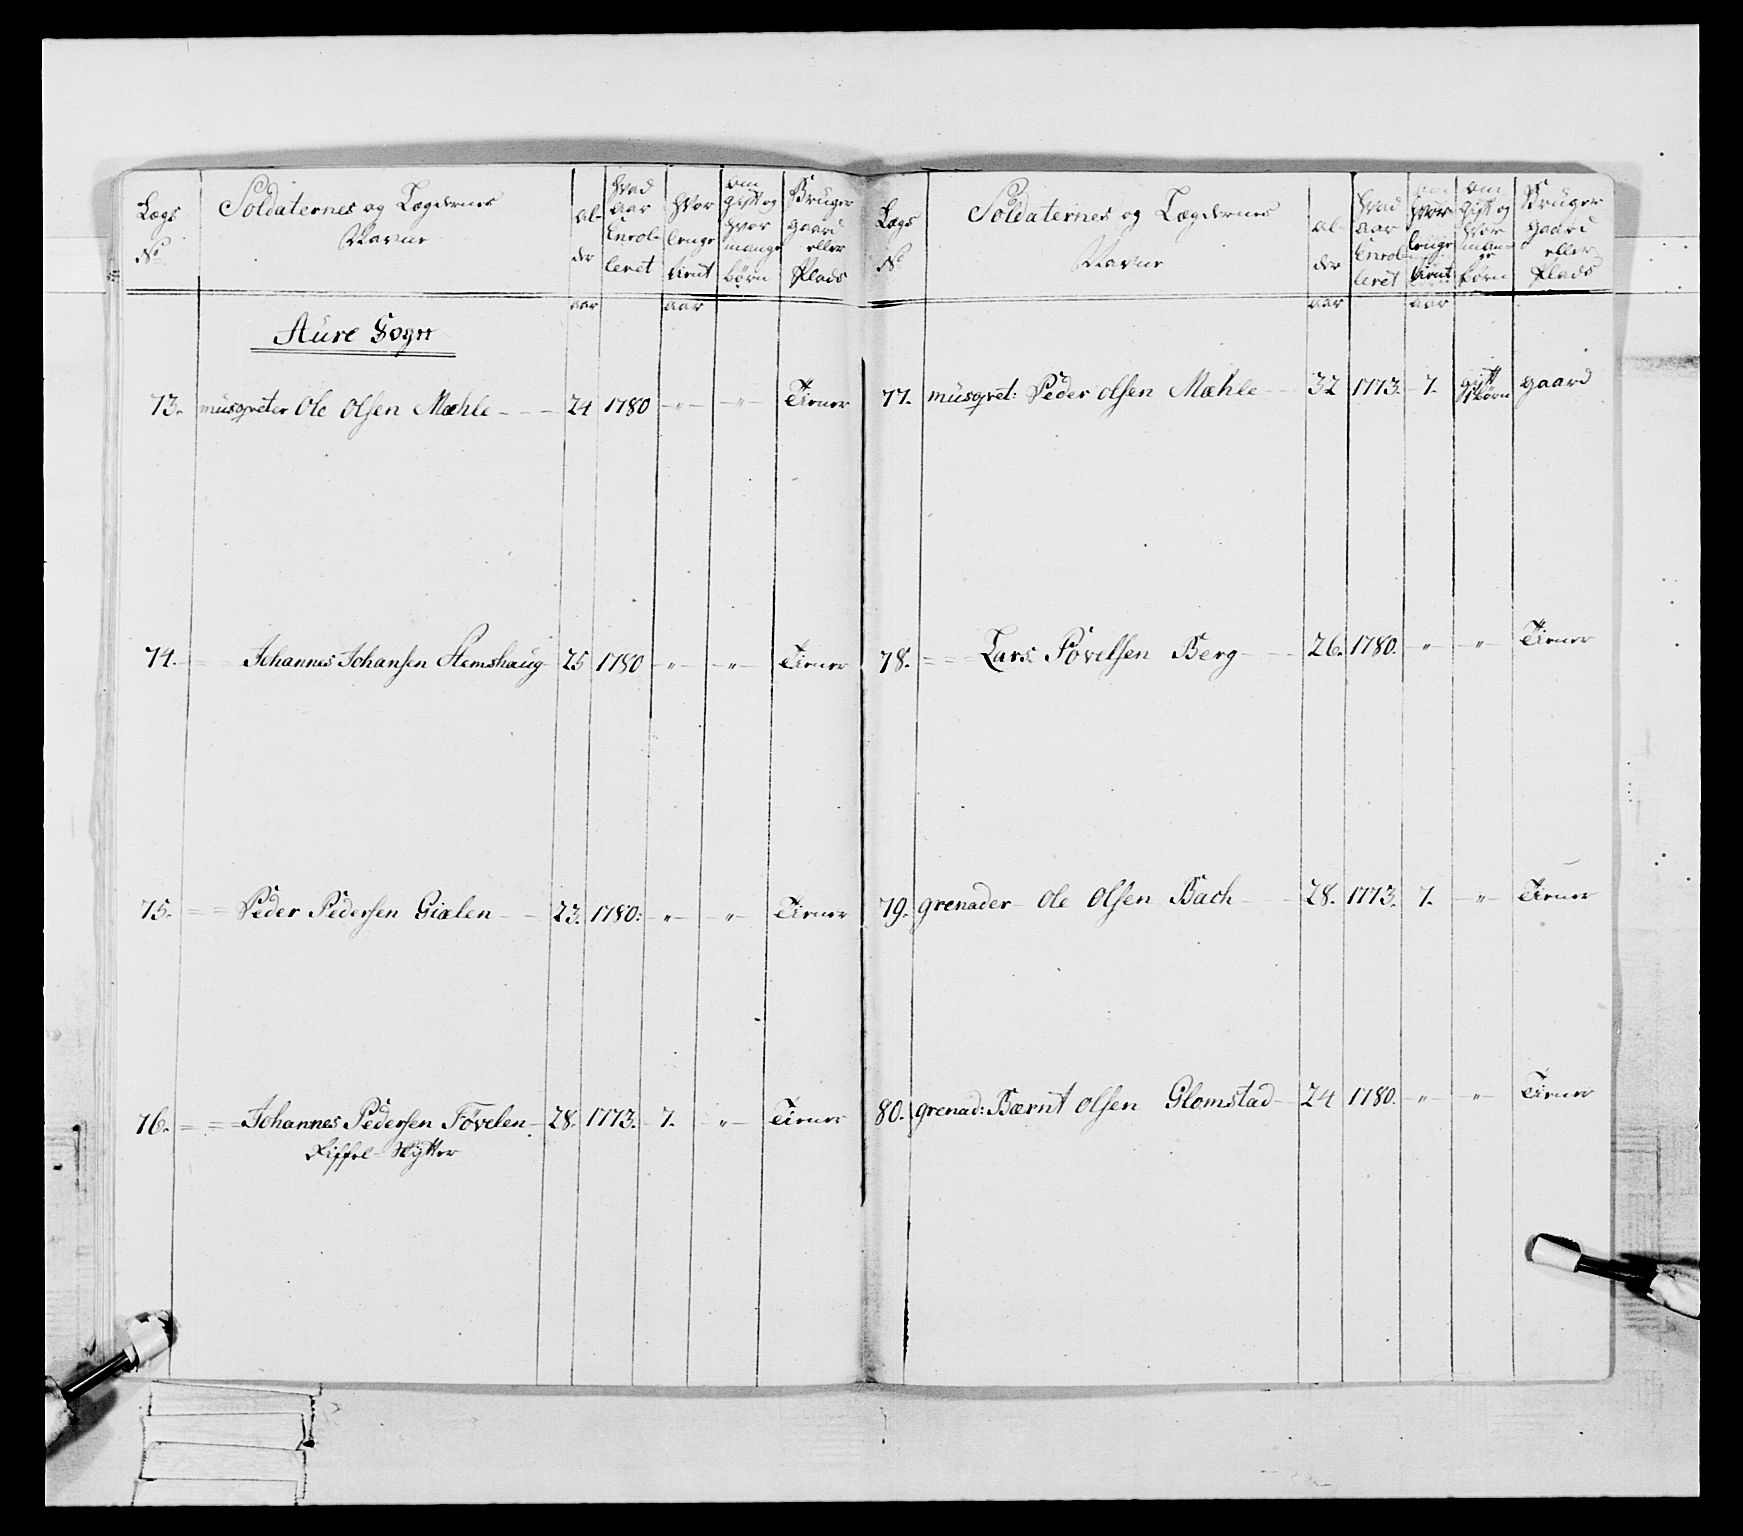 Lægs No | Soldaternes og Lægdernes Navne | al-der | hvad aar Enrol-leret | hvor lenge tient | om gift og hvor mange børn | Bruger gaard eller Plads
aar | aar
Aure Sogn
73. musqveter Ole Olsen Mæhle - - - 24 1780 - „ - - „ - Tiener
74. = = Johannes Johansen Stemshaug 25 1780 - „ - - „ - Tiener
75. = = Peder Pedersen Giælen - - 23. 1780. - „ - - „ - Tiener
76. = = = Johannes Pedersen Tøvelen - 28. 1773. 7. - „ - Tiener
Riffel-Skytter
Lægs No | Soldaternes og Lægdernes Navne | al-der | hvad aar Enrol-leret | hvor lenge tient | om gift og hvor man-ge børn | Bruger gaard eller Plads
aar | aar
77. musqvet: Peder Olsen Mæhle - - 32 1773. 7. gift børn gaard
78. = = Lars Povelsen Berg - - - 26. 1780. - „ - - „ - Tiener
79. grenader Ole Olsen Bach - - 28. 1773. 7. - „ - Tiener
80. grenad: Bærnt Olsen Glomstad - 24 1780. - „ - - „ - Tiener